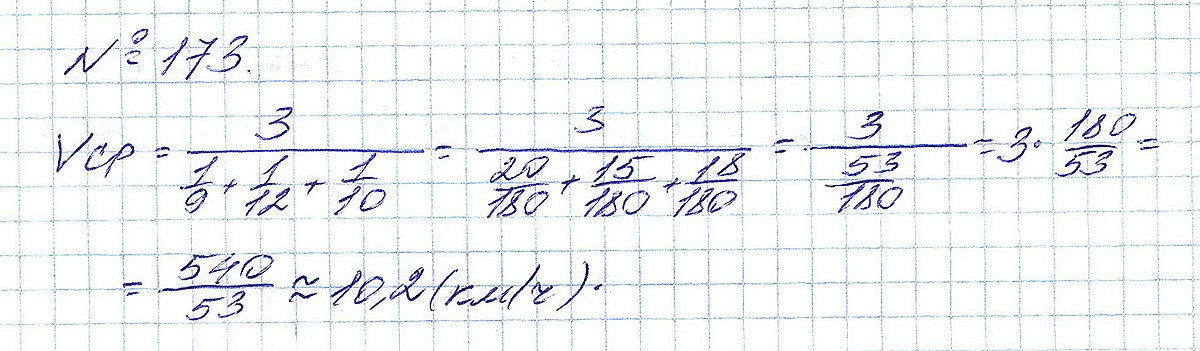 № 173.
Vср = 3/(1/9 + 1/12 + 1/10) = 3/(20/180 + 15/180 + 18/180) = 3/(53/180) = 3 · 180/53 =
= 540/53 ≈ 10,2 (км/ч).